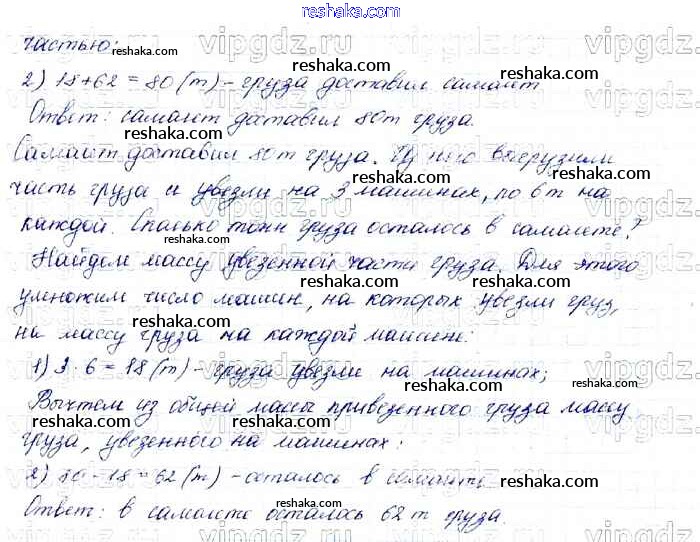 reshaka.com
частью:
2) 18+62=80 (т) - груза доставил самолёт
Ответ: самолёт доставил 80 т груза.
Самолёт доставил 80 т груза. Из него выгрузили
часть груза и увезли на 3 машинах, по 6 т на
каждой. Сколько тонн груза осталось в самолете?
Найдем массу увезенной части груза. Для этого
умножим число машин, на которых увезли груз,
на массу груза на каждой машине:
1) 3 · 6 = 18 (т) - груза увезли на машинах;
Вычтем из общей массы привезенного груза массу
груза, увезенного на машинах:
2) 80 - 18 = 62 (т) - осталось в самолете
Ответ: в самолете осталось 62 т груза.